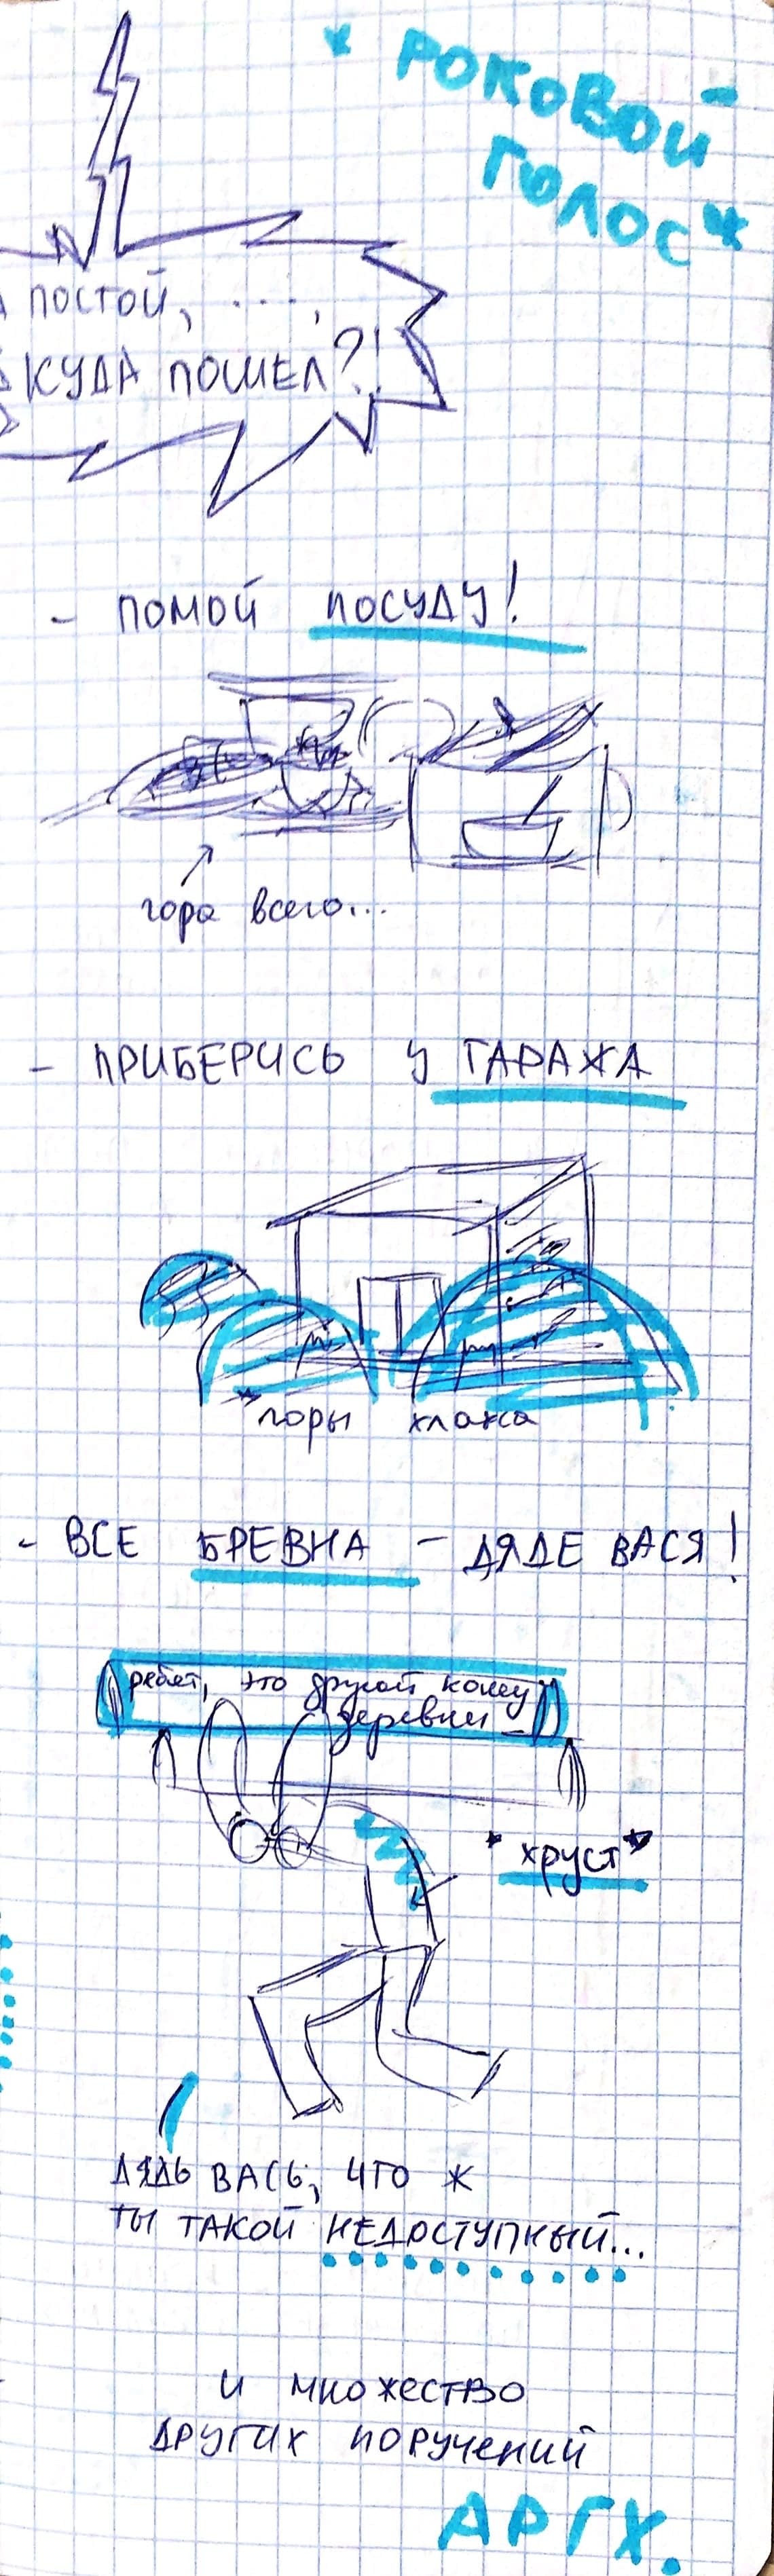 * РОКОВОЙ
ГОЛОС *
ПОСТОЙ, ....,
КУДА ПОШЕЛ?!
- ПОМОЙ ПОСУДУ!
гора всего...
- ПРИБЕРИСЬ У ГАРАЖА
*горы хлама
- ВСЕ БРЕВНА - ДЯДЕ ВАСЯ!
ребят, это другой конец
деревни _
*хруст*
ДЯДЬ ВАСЬ, ЧТО Ж
ТЫ ТАКОЙ НЕДОСТУПНЫЙ...
И МНОЖЕСТВО
ДРУГИХ ПОРУЧЕНИЙ
АРГХ.